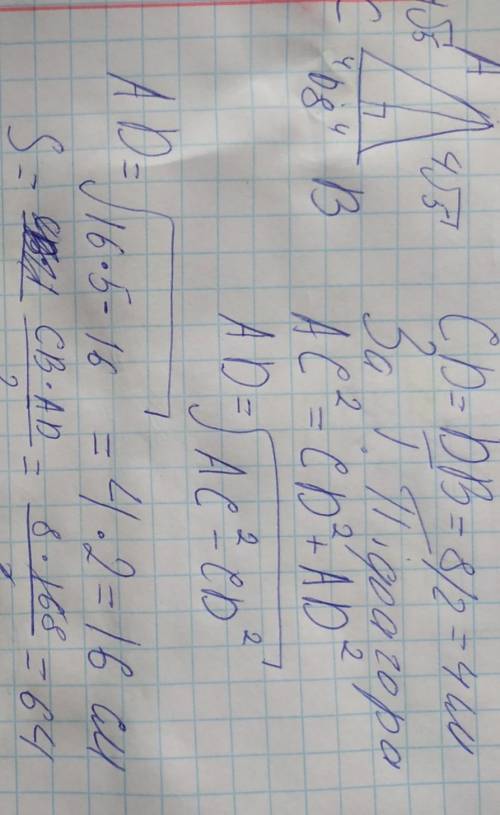 A
4√5 4√5
C 4 D 8 4 B
CD = DB = 8/2 = 4 см
За т. Піфагора
AC² = CD² + AD²
AD = √AC² - CD²
AD = √16·5-16 = 4·2 = 16 см
S = CB·AD/2 = 8·168/2 = 64